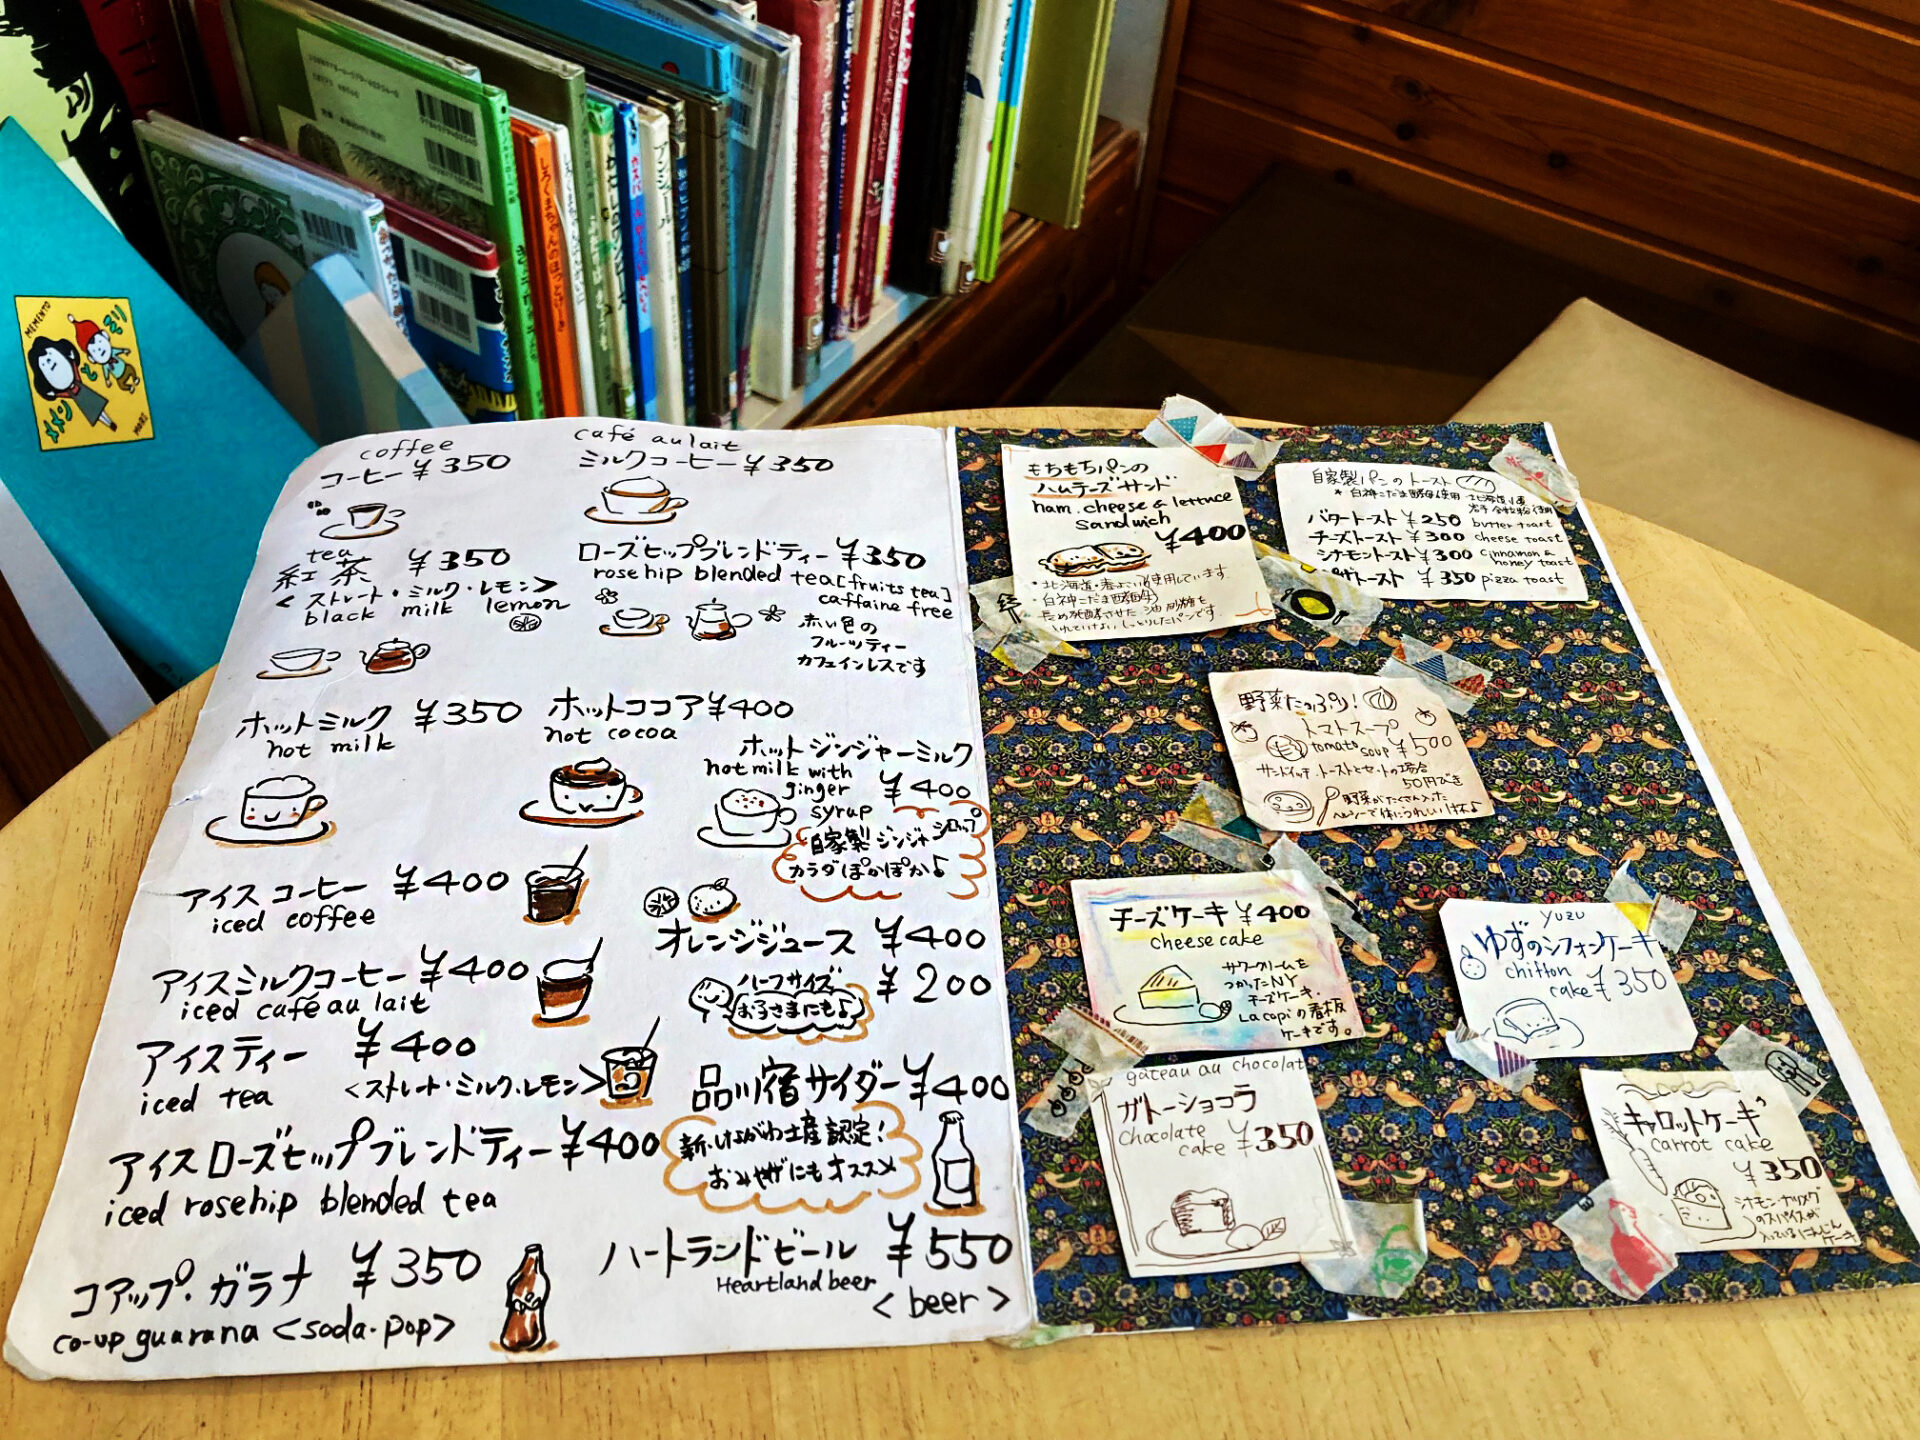 coffee
コーヒー ¥350
café au lait
ミルクコーヒー ¥350
tea
紅茶 ¥350
<ストレート・ミルク・レモン>
black milk lemon
ローズヒップブレンドティー ¥350
rosehip blended tea [fruits tea]
caffaine free
赤い色の
フルーツティー
カフェインレスです
ホットミルク ¥350
hot milk
ホットココア ¥400
hot cocoa
ホットジンジャーミルク
hot milk with
ginger ¥400
syrup
自家製ジンジャーシロップ
カラダぽかぽか♪
アイスコーヒー ¥400
iced coffee
オレンジジュース ¥400
ハーフサイズ ¥200
お子さまにも♪
アイスミルクコーヒー ¥400
iced café au lait
アイスティー ¥400
iced tea <ストレート・ミルク・レモン>
品川宿サイダー ¥400
新・しながわ土産認定!
おみやげにもオススメ
アイスローズヒップブレンドティー ¥400
iced rosehip blended tea
コアップ・ガラナ ¥350
co-up guarana <soda-pop>
ハートランドビール ¥550
Heartland beer
<beer>
もちもちパンの
ハムチーズサンド
ham, cheese & lettuce
sandwich
¥400
・北海道・春よこい使用しています.
・白神こだま酵母
長め発酵させた 油 砂糖を
いれていない しっとりしたパンです.
自家製パンのトースト
*白神こだま酵母使用
バタートースト ¥250 butter toast
チーズトースト ¥300 cheese toast
シナモントースト ¥300 cinnamon &
honey toast
ピザトースト ¥350 pizza toast
野菜たっぷり!
トマトスープ
tomato soup ¥500
サンドイッチ、トーストとセットの場合
50円びき
野菜がたくさん入った
ヘルシーで体にうれしい1杯♪
チーズケーキ ¥400
cheese cake
サワークリームを
つかったNY
チーズケーキ.
La copiの看板
ケーキです。
yuzu
ゆずのシフォンケーキ
chiffon
cake ¥350
gâteau au chocolat
ガトーショコラ
chocolate
cake ¥350
キャロットケーキ
carrot cake
¥350
シナモン ナツメグ
のスパイスが
入っているにんじん
ケーキ
しろくまちゃんのほっとけーき
アンジュール
MEMENTO